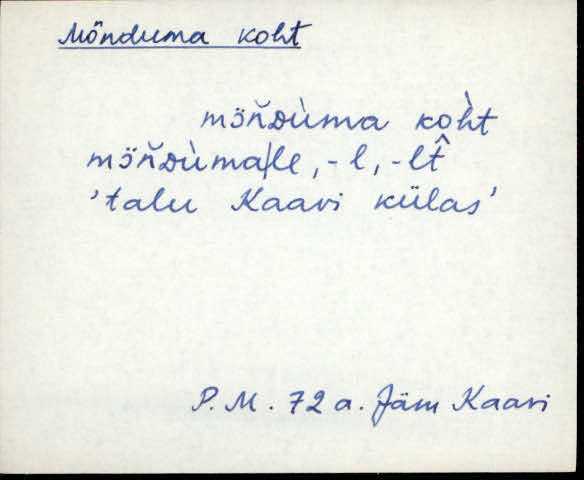 Mõnduma koht
mɜ̈ňᴅùma koh̀t
mɜ̈ňᴅùma|le, -l, -lt̂
'talu Kaavi külas'
P.M. 72 a. Jäm Kaavi